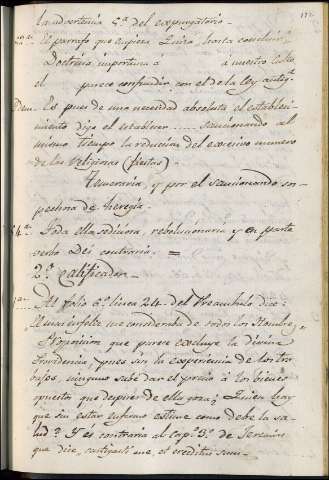 la advertencia 5ª del expurgatorio.
El parrafo que empieza Quizá, hasta concluir.
Doctrina importuna á á nuestro Culto,
el parece confundir con el de la Ley antigª.
Idem. Es pues de una necesidad absoluta el estableci-
miento digo el establecer ...... sancionando al
mismo tiempo la reducion del excesivo numero
de las Religiosas (fiestas)
Temeraria, y por el sancionando sos-
pechosa de heregia.
24.ª Toda ella sediciosa, rebolucionaria y en parte
verbo Dei contraria. =
2º Calificador.
1ª Al folio 6º linea 24 del Preambulo dice:
El mas infeliz me consideraba de todos los Hombres
Proposicion que parece excluye la divina
Providencia, pues sin la experiencia de los tra-
bajos, ninguno sabe dar el precio á los bienes
opuestos que despues de ellos goza; Quien hay
que sin estar enfermo estime como debe la sa-
lud? Y és contraria al capº 3º de Jeremias
que dice, castigasti me, et eruditus sum.